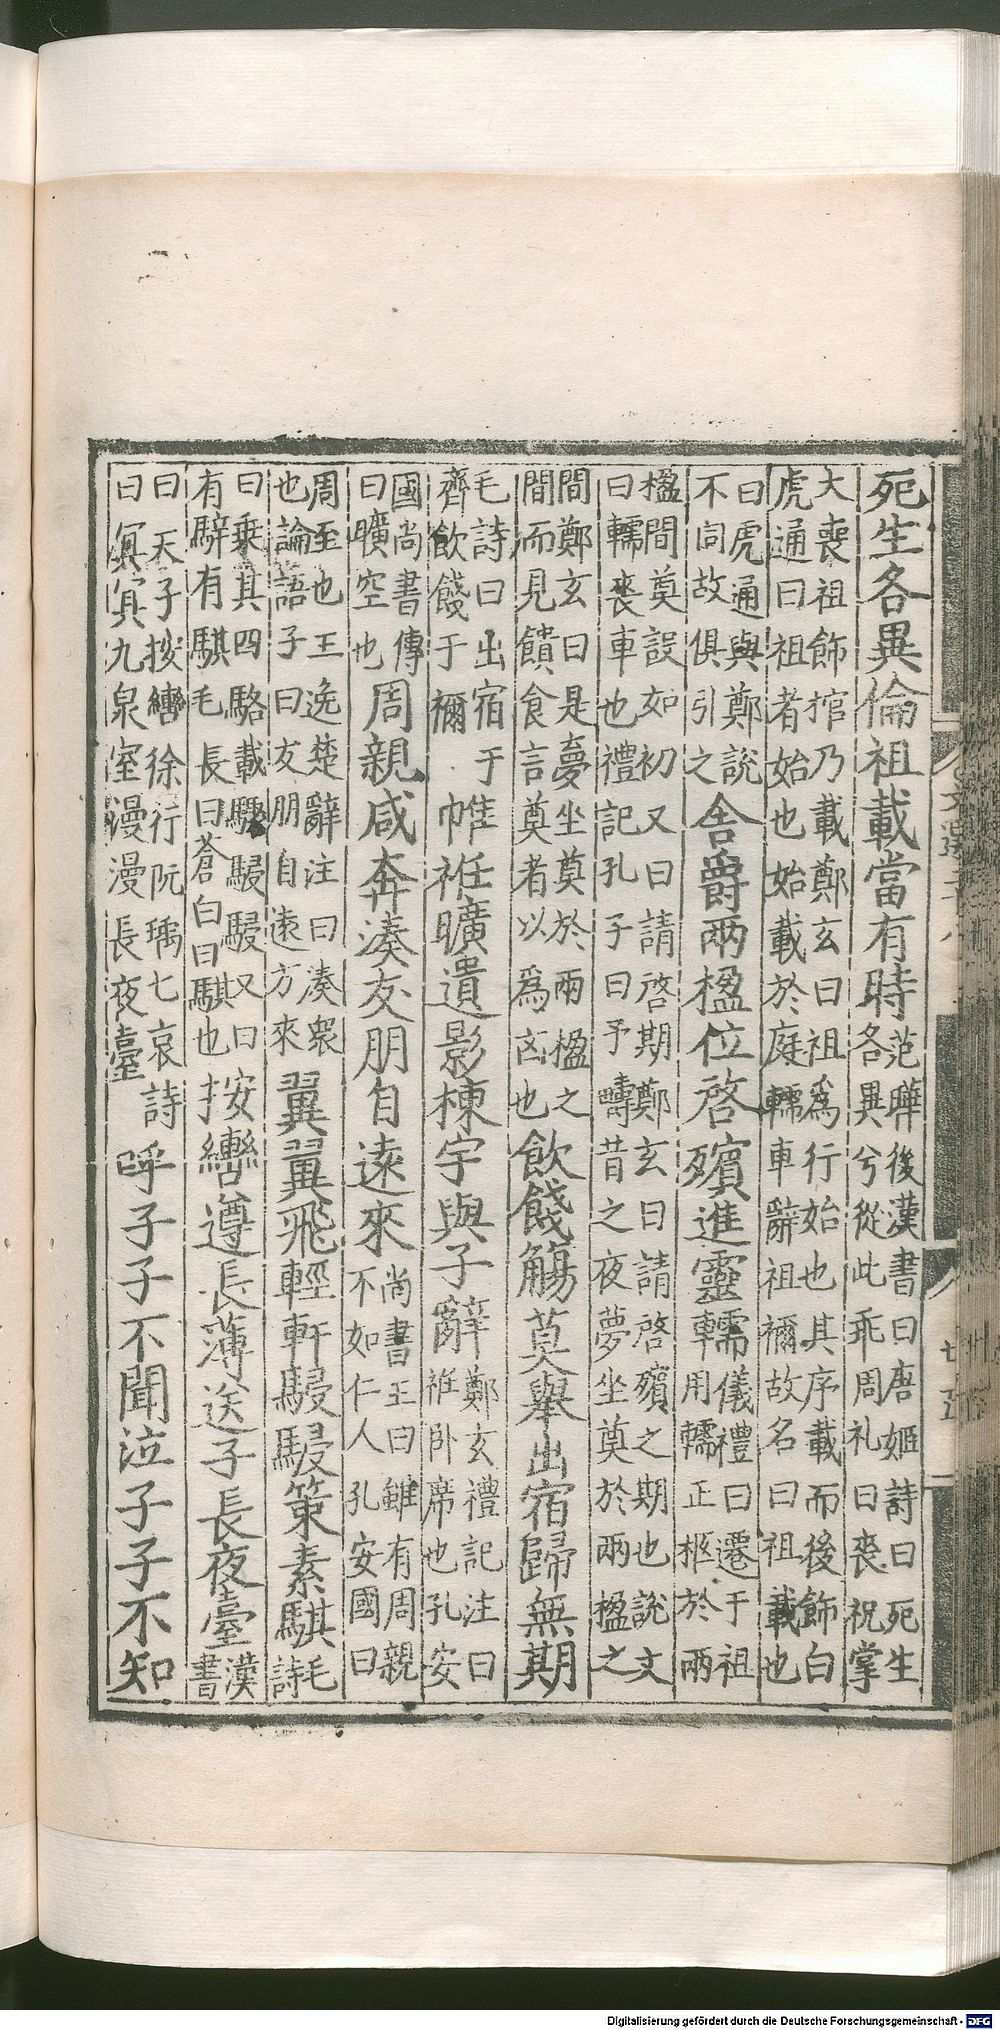 死生各異倫祖載當有時
范曄後漢書曰唐姬詩曰死生
各異兮從此乖周礼曰喪祝掌
大喪祖飾棺乃載鄭玄曰祖爲行始也其序載而後飾白
虎通曰祖者始也始載於庭轜車辭祖禰故名曰祖載也
曰虎通與鄭說
不同故俱引之
舍爵兩楹位啓殯進靈轜
儀禮曰遷于祖
用轜正柩於兩
楹間奠設如初又曰請啓期鄭玄曰請啓殯之期也說文
曰轜喪車也禮記孔子曰予疇昔之夜夢坐奠於兩楹之
間鄭玄曰是夢坐奠於兩楹之
間而見饋食言奠者以爲凶也
飲餞觴莫舉出宿歸無期
毛詩曰出宿于
齊飲餞于禰
帷袵曠遺影棟宇與子辭
鄭玄禮記注曰
袵卧席也孔安
國尚書傳
曰曠空也
周親咸奔湊友朋自遠來
尚書王曰雖有周親
不如仁人孔安國曰
周至也王逸楚辭注曰湊衆
也論語子曰友朋自遠方來
翼翼飛輕軒駸駸策素騏
毛
詩
曰乘其四駱載驟駸駸又曰
有騂有騏毛長曰蒼白曰騏也
按轡遵長薄送子長夜臺
漢
書
曰天子按轡徐行阮瑀七哀詩
曰冥冥九泉室漫漫長夜臺
呼子子不聞泣子子不知
Digitalisierung gefördert durch die Deutsche Forschungsgemeinschaft - DFG